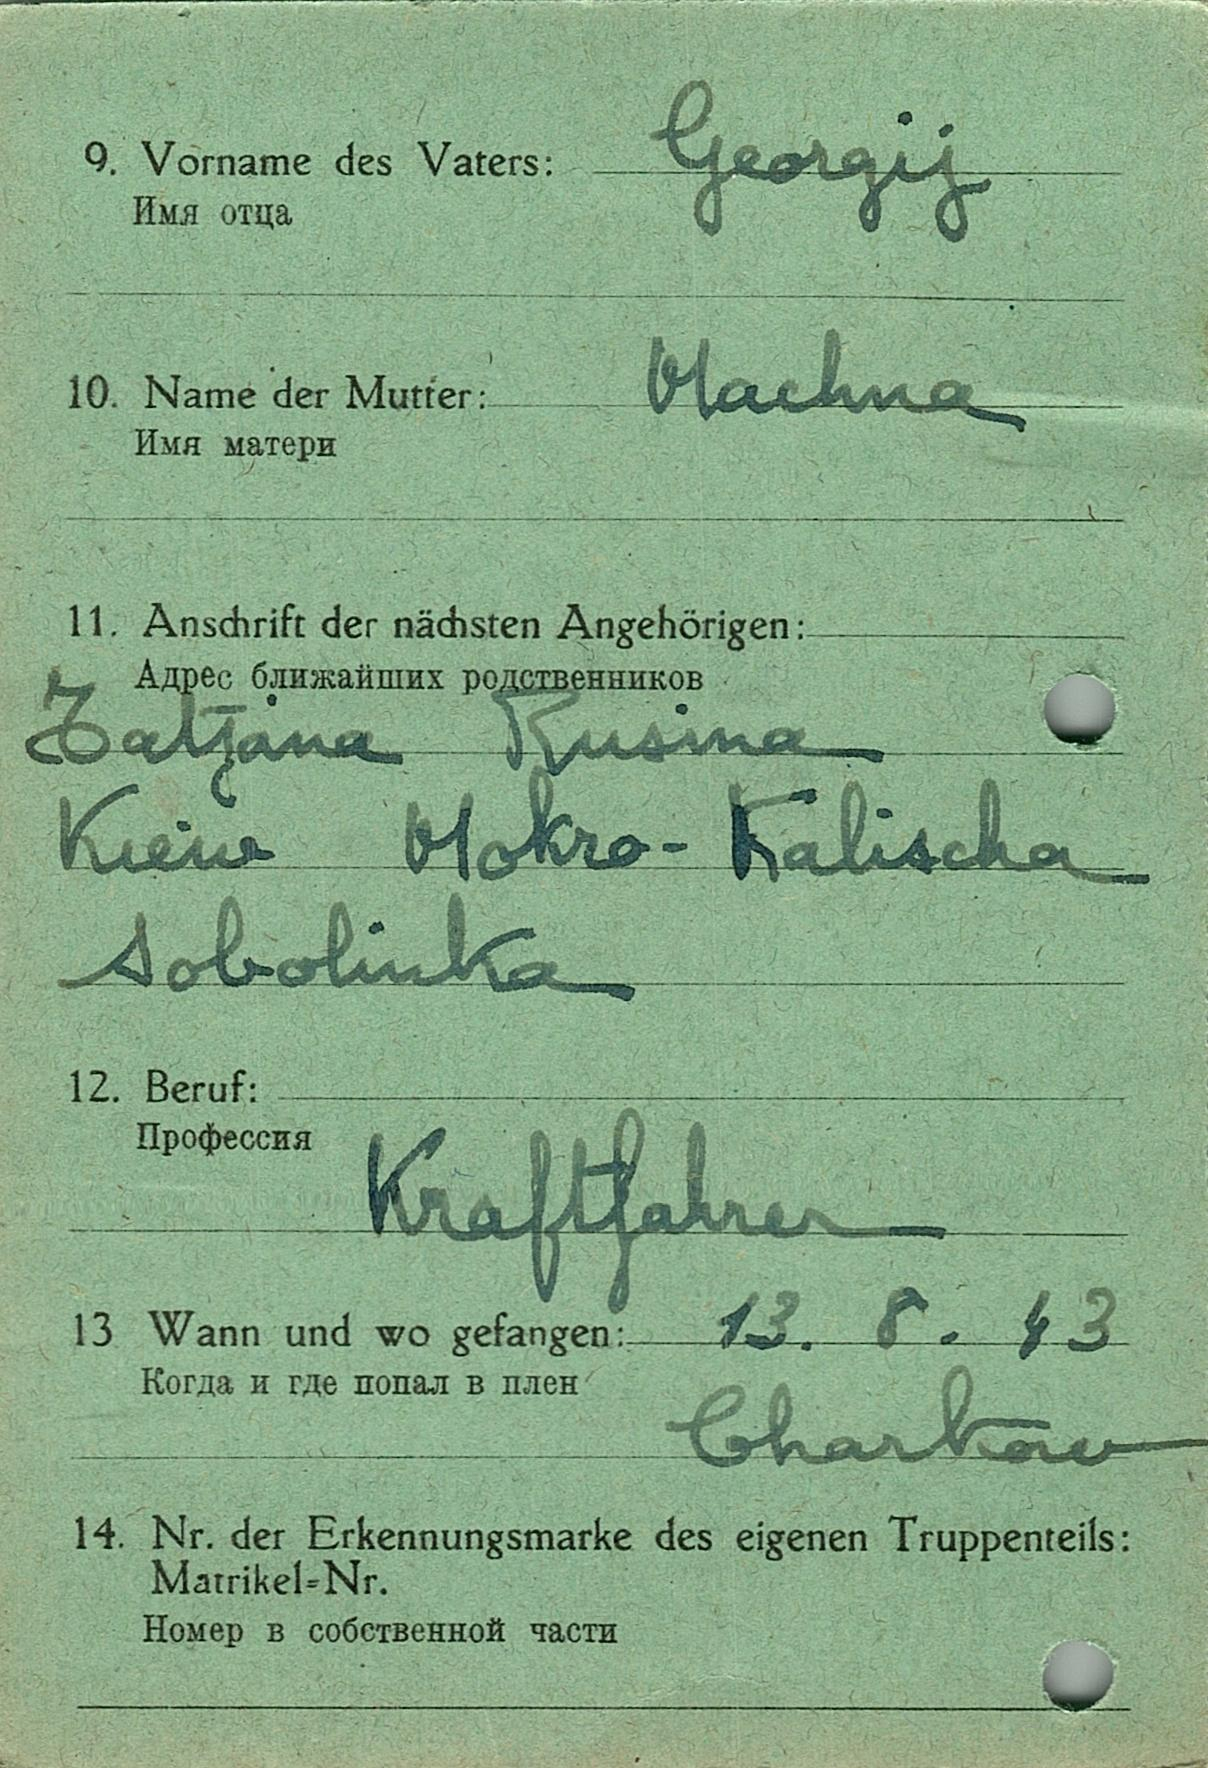 9. Vorname des Vaters: Georgij
Имя отца
10. Name der Mutter: Machna
Имя матери
11. Anschrift der nächsten Angehörigen:
Адрес ближайших родственников
Tatjana Rusina
Kiew Mokro-Kalischa
Sobolinka
12. Beruf:
Профессия
Kraftfahrer
13 Wann und wo gefangen: 13. 8. 43
Когда и где попал в плен
Charkow
14. Nr. der Erkennungsmarke des eigenen Truppenteils:
Matrikel=Nr.
Номер в собственной части